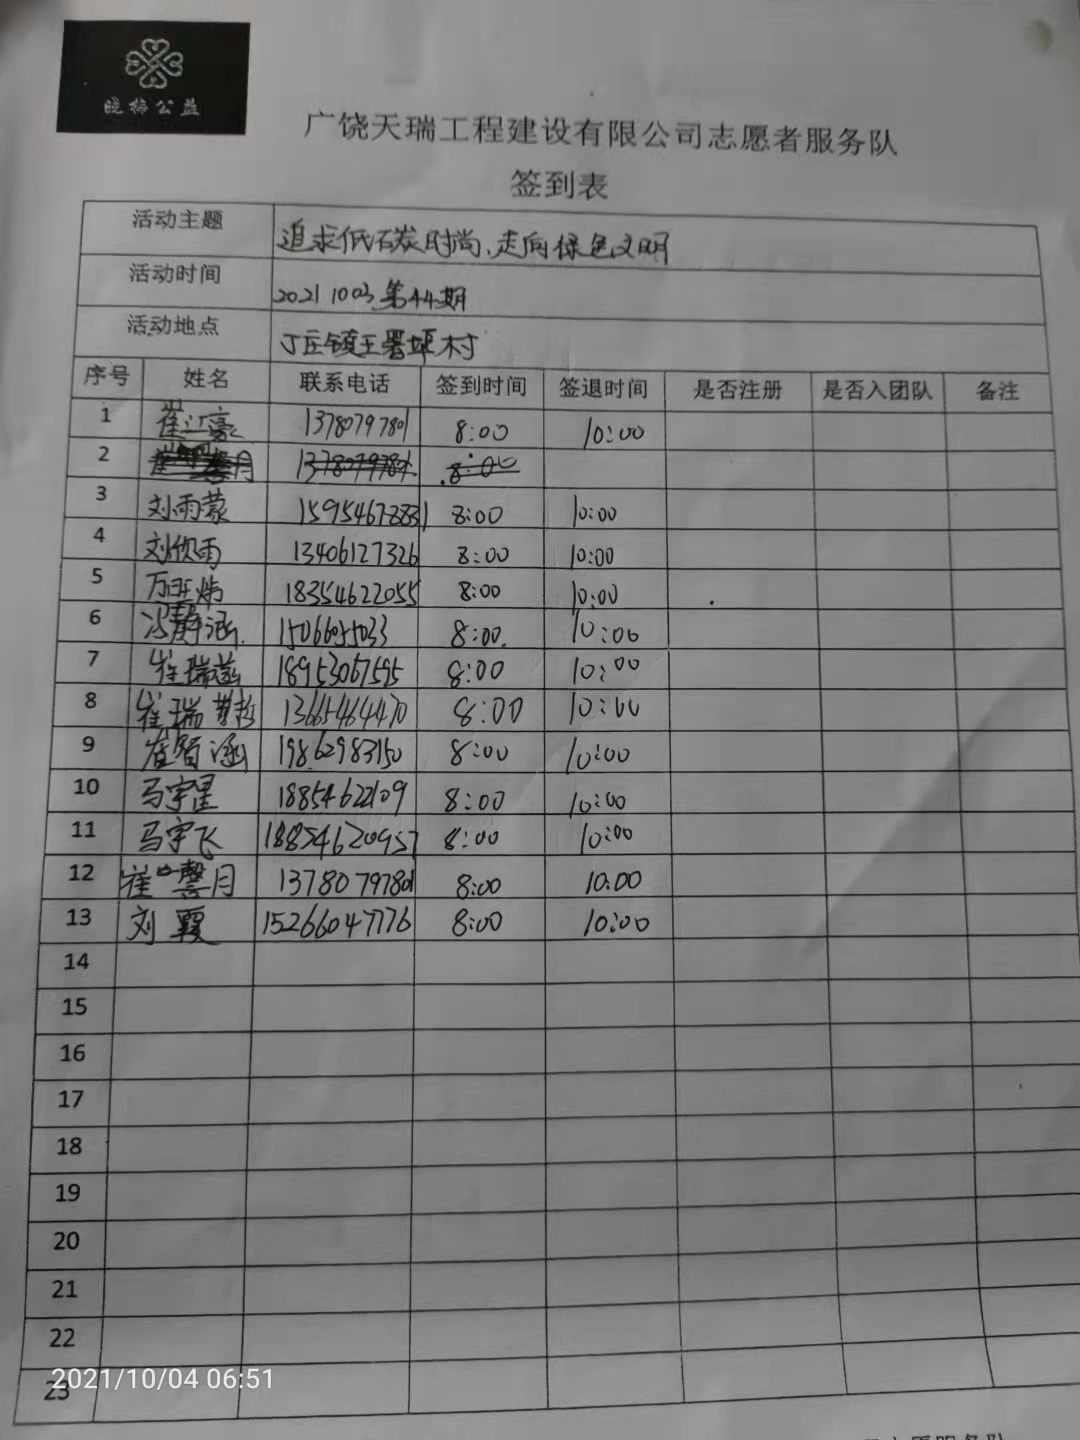 晓梅公益
广饶天瑞工程建设有限公司志愿者服务队
签到表
活动主题 追求低碳时尚,走向绿色文明
活动时间 20211003 第44期
活动地点 丁庄镇王署埠村
序号 姓名 联系电话 签到时间 签退时间 是否注册 是否入团队 备注
1 崔江豪 13780797801 8:00 10:00
2 13780797801 8:00
3 刘雨蒙 8:00 10:00
4 刘欣雨 13406127326 8:00 10:00
5 18354622055 8:00 10:00
6 冯静涵 15066055033 8:00 10:00
7 崔瑞 18953067595 8:00 10:00
8 崔瑞 13665464470 8:00 10:00
9 崔智涵 19862983150 8:00 10:00
10 马宇星 18854622109 8:00 10:00
11 马宇飞 18854620957 8:00 10:00
12 崔馨月 13780797801 8:00 10:00
13 刘霞 15266047776 8:00 10:00
14
15
16
17
18
19
20
21
22
23
2021/10/04 06:51